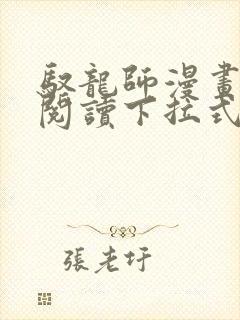 馭龍師漫畫
閱讀下拉式
張老圩